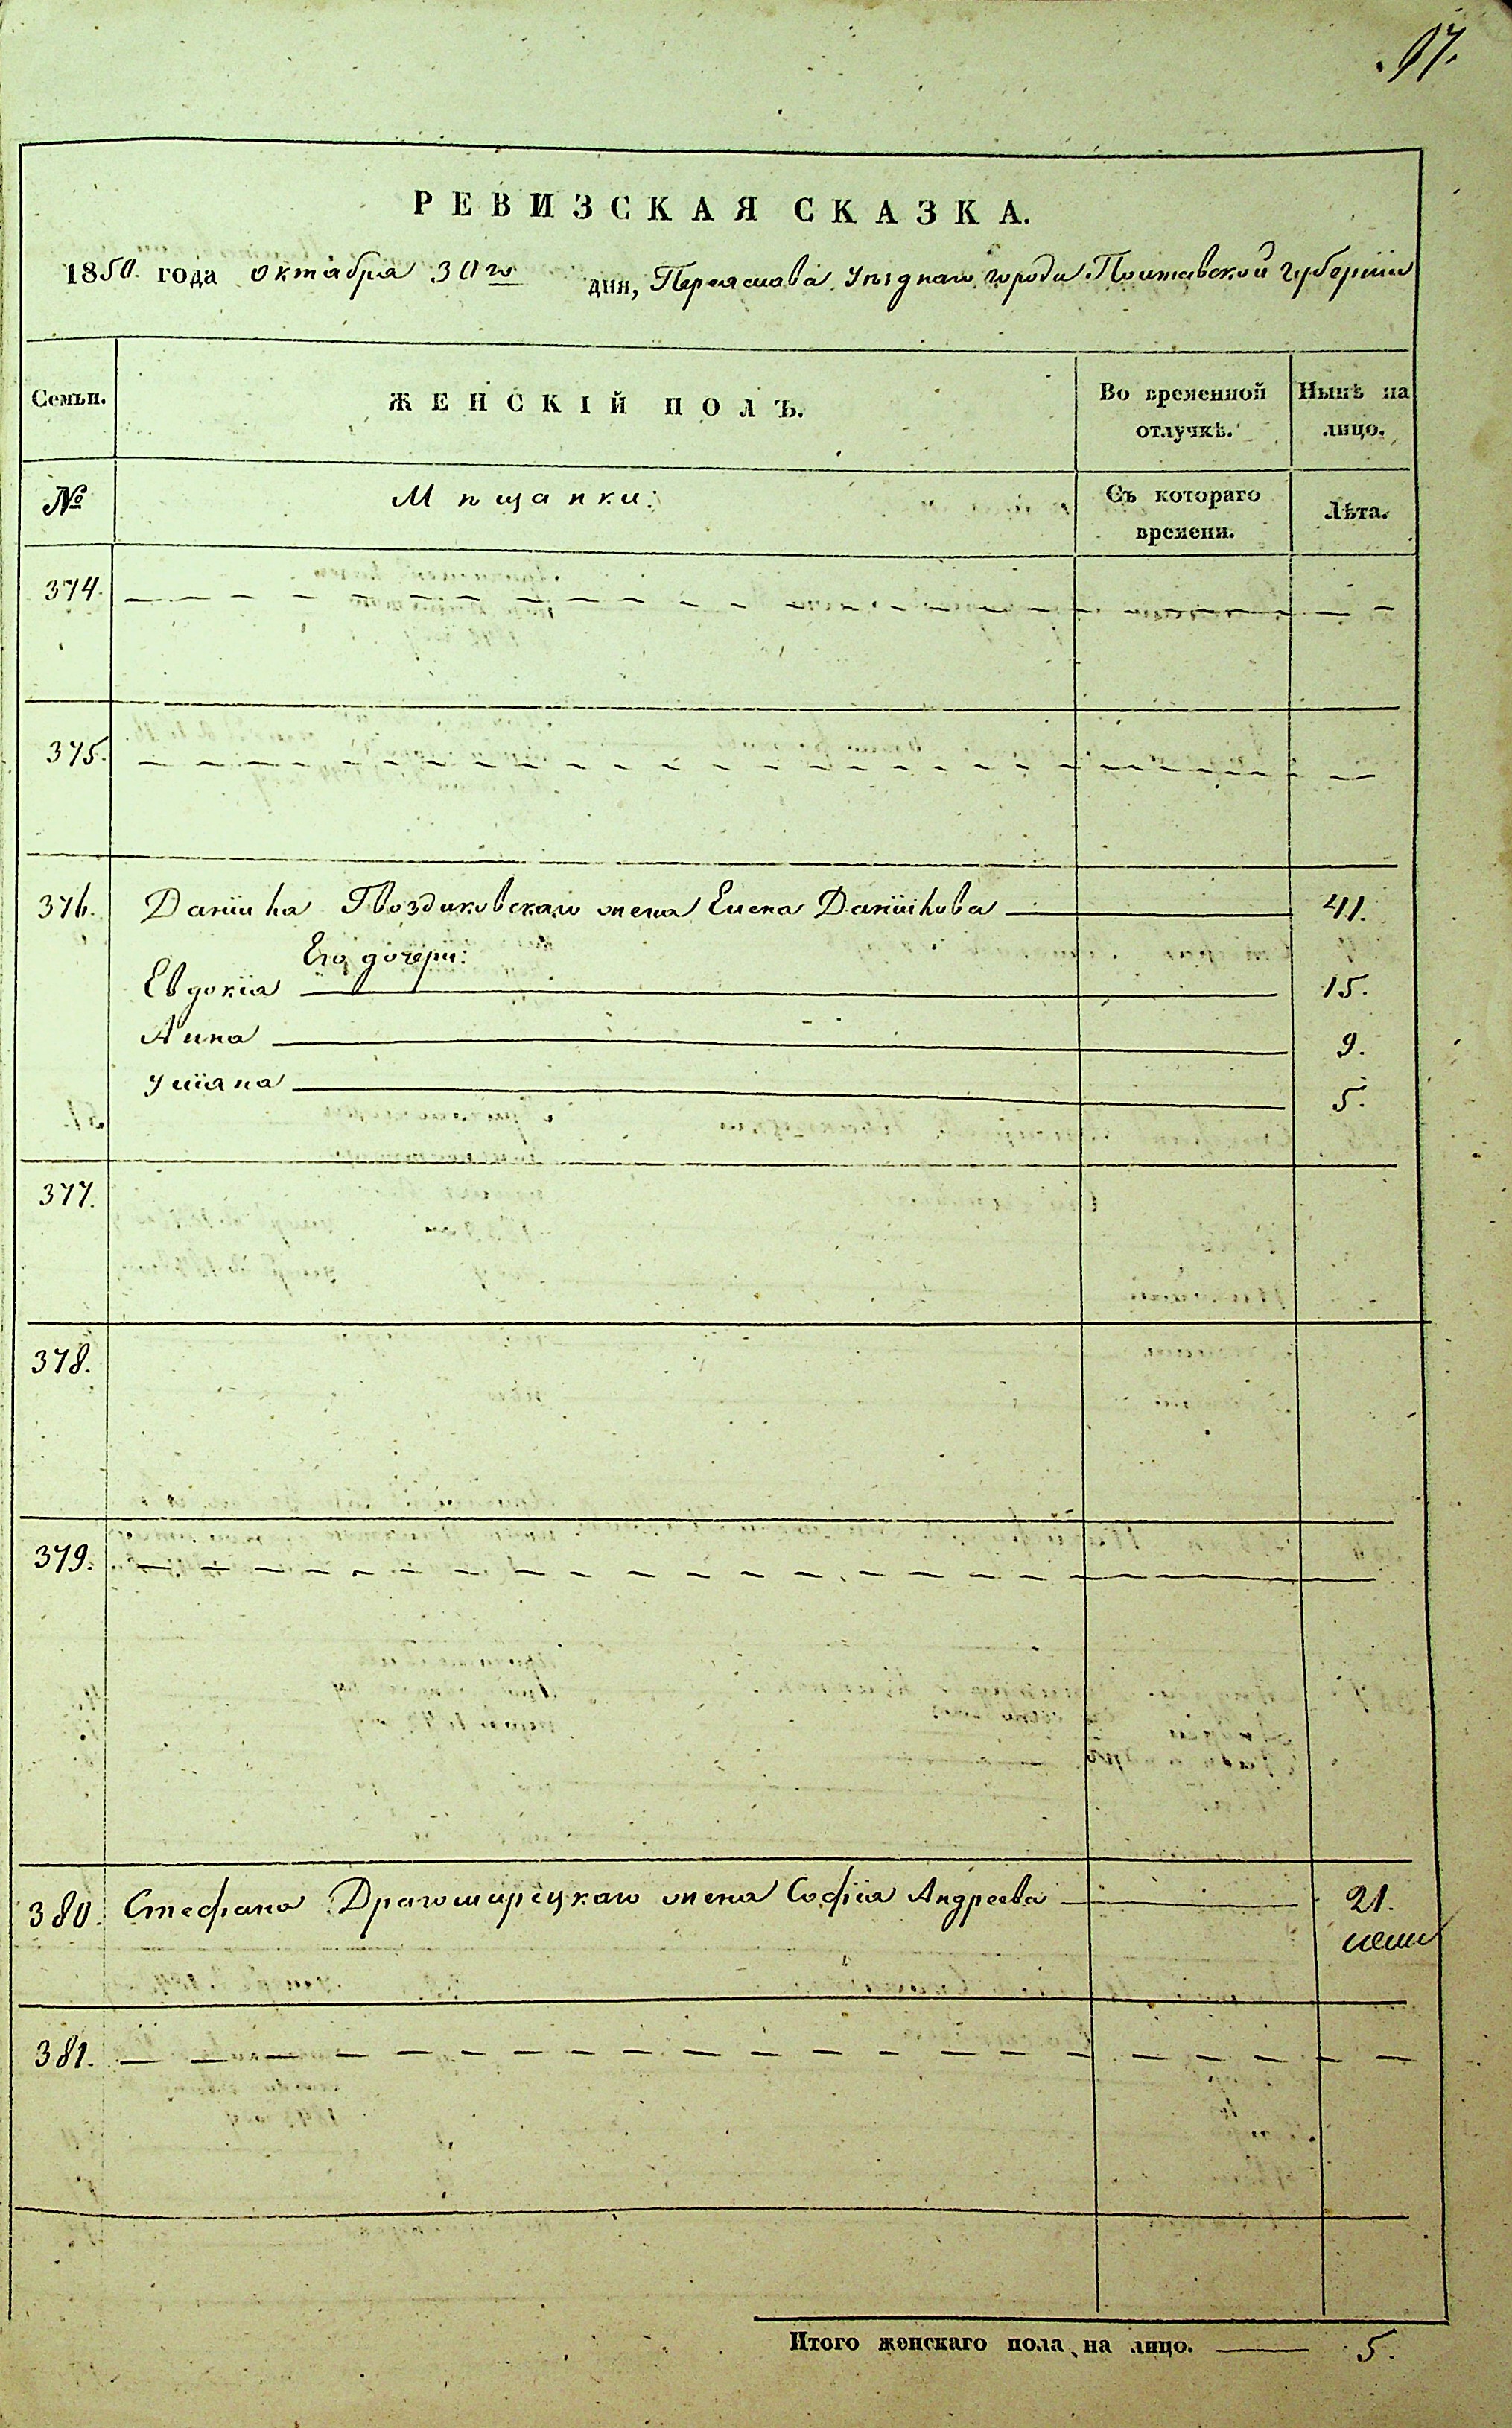 97.
РЕВИЗСКАЯ СКАЗКА.
1850. года октября 30го дня, Переяслава уѣзднаго города Полтавской губерніи
Семьи. ЖЕНСКІЙ ПОЛЪ. Во временной отлучкѣ. Нынѣ на лицо.
№ Мѣщанки: Съ котораго времени. Лѣта.
374.
375.
376. Даніила Гвоздиковскаго жена Елена Даніилова 41.
Его дочери:
Евдокія 15.
Анна 9.
Уліяна 5.
377.
378.
379.
380. Стефана Драгомирецкаго жена Софія Андреева 21.
381.
Итого женскаго пола на лицо. 5.